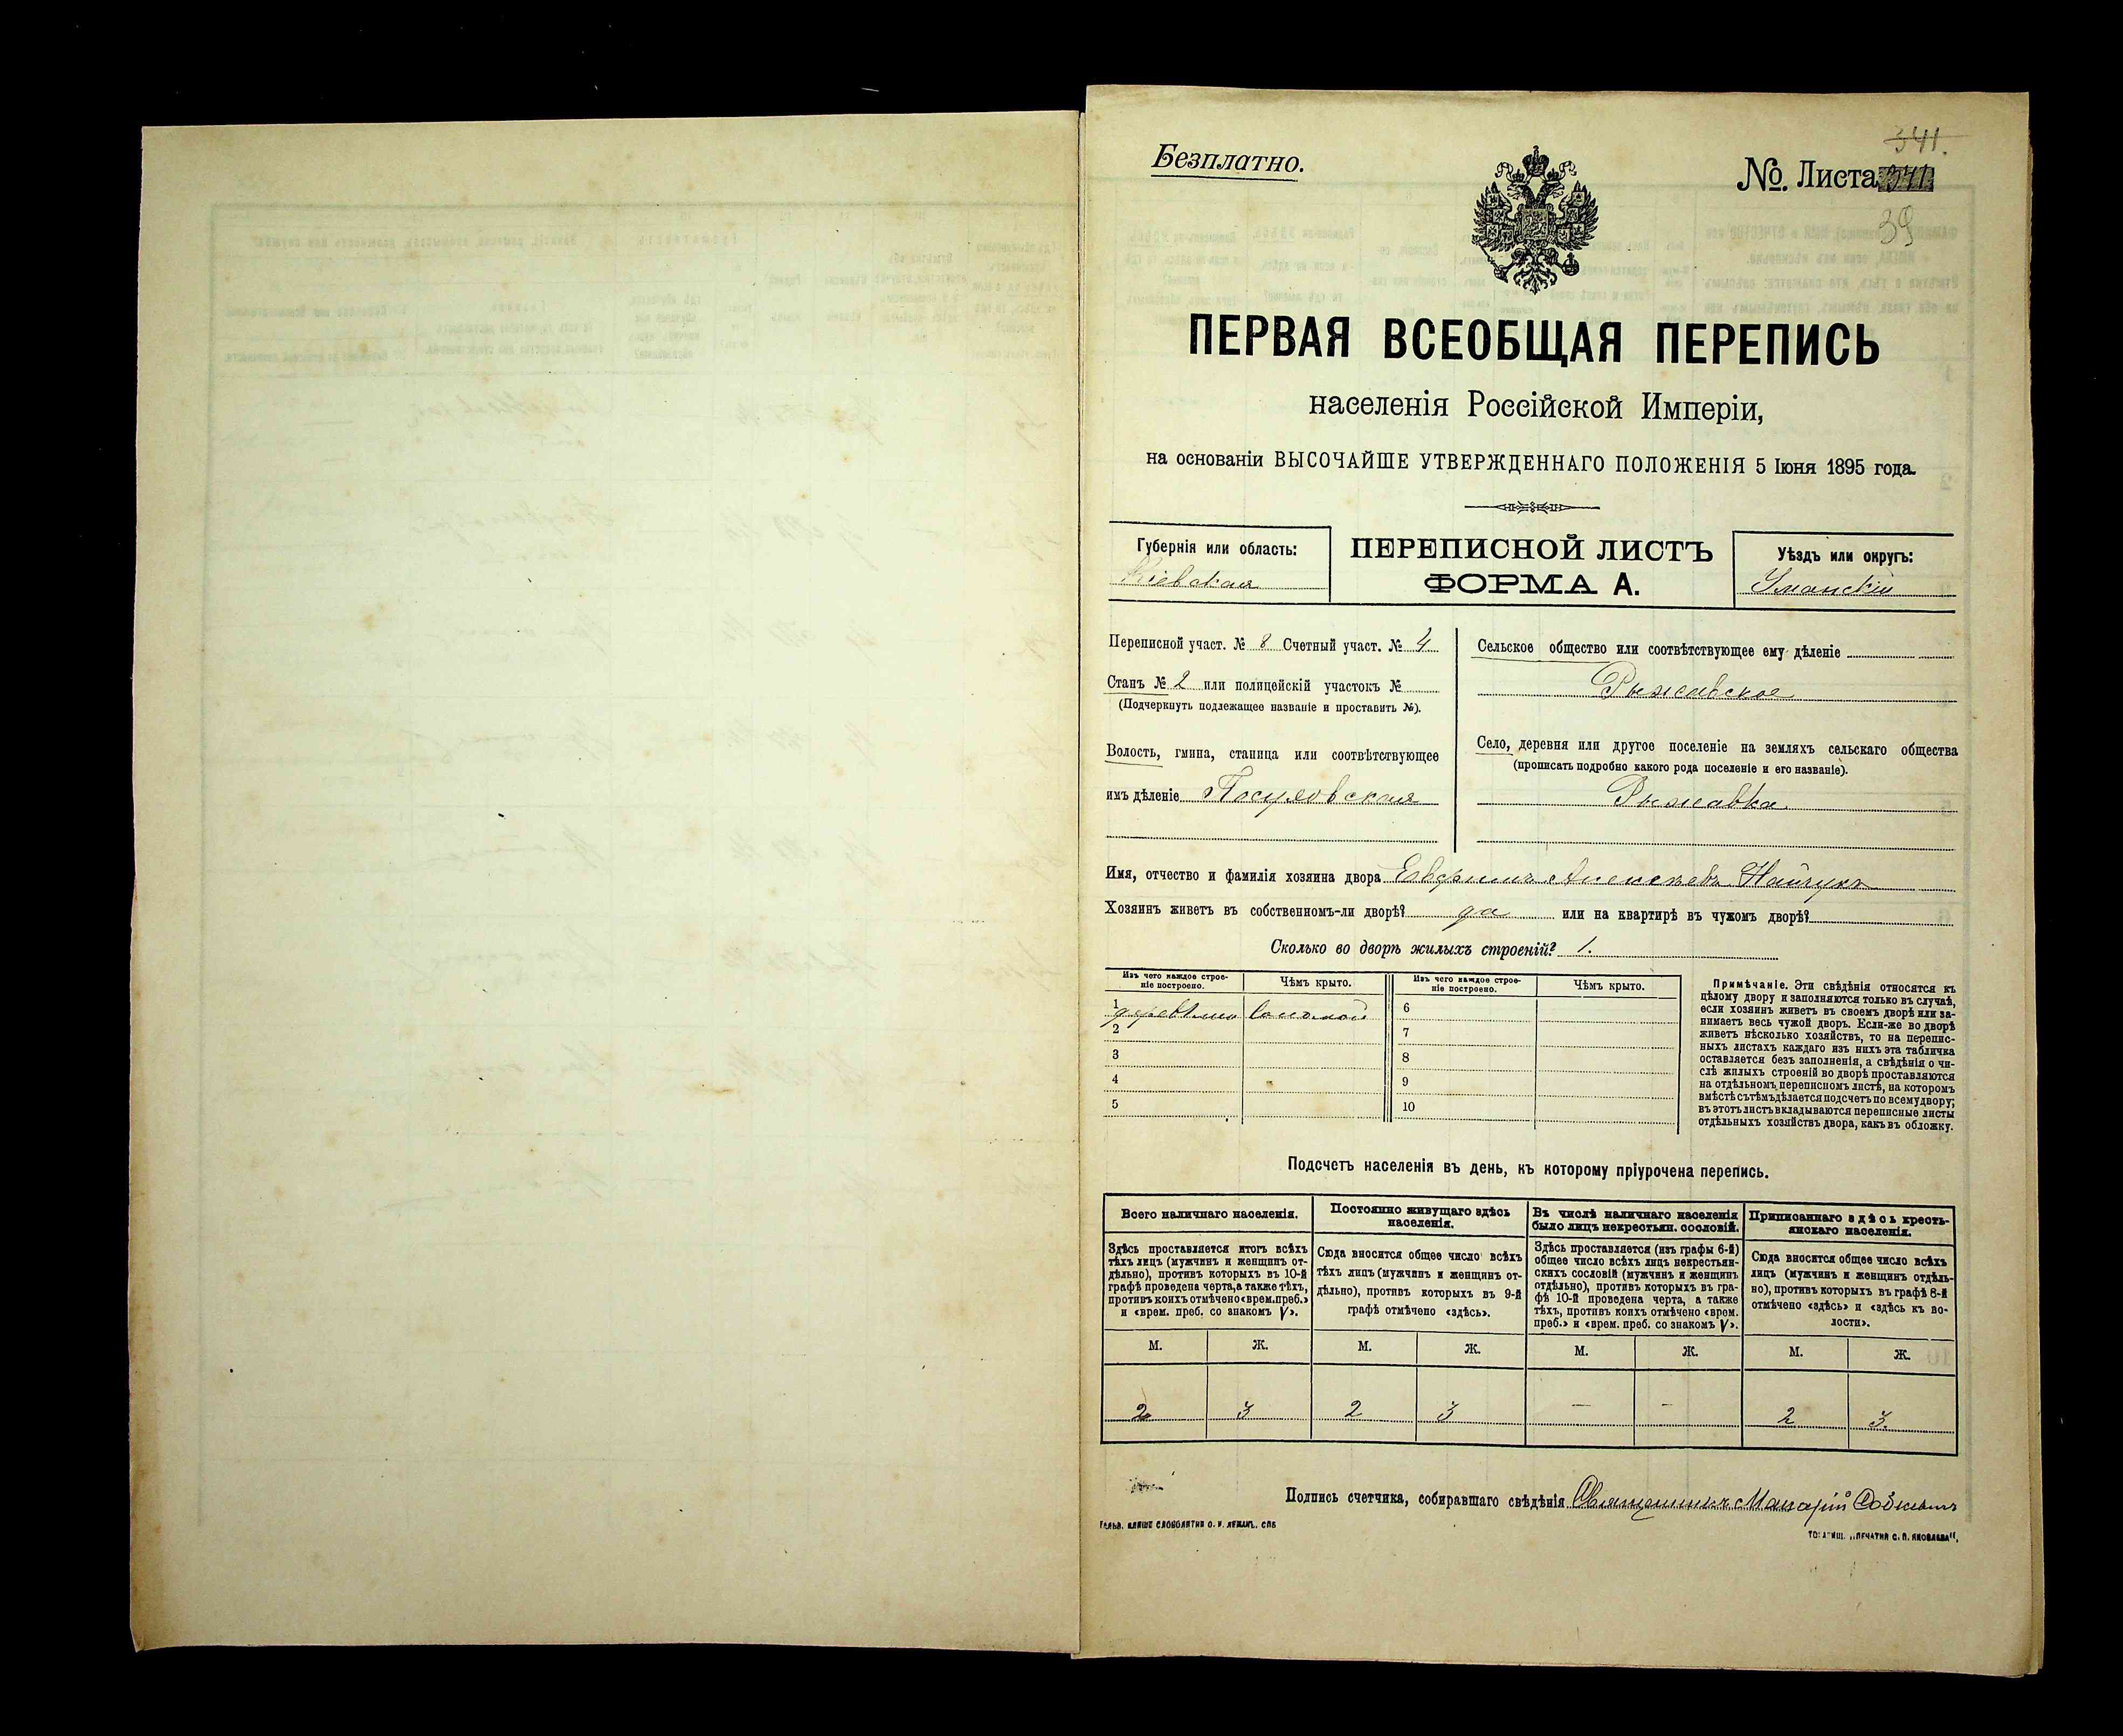 341.
Безплатно.
No. Листа 341
39
ПЕРВАЯ ВСЕОБЩАЯ ПЕРЕПИСЬ
населенія Россійской Имперіи,
на основаніи ВЫСОЧАЙШЕ УТВЕРЖДЕННАГО ПОЛОЖЕНІЯ 5 Іюня 1895 года.
Губернія или область:
Кіевская
ПЕРЕПИСНОЙ ЛИСТЪ
ФОРМА А.
Уѣздъ или округъ:
Уманскій
Переписной участ. № 8 Счетный участ. № 4
Станъ № 2 или полицейскій участокъ №
(Подчеркнуть подлежащее названіе и проставить №).
Волость, гмина, станица или соотвѣтствующее
имъ дѣленіе Посуховская
Сельское общество или соотвѣтствующее ему дѣленіе
Рыжавское
Село, деревня или другое поселеніе на земляхъ сельскаго общества
(прописать подробно какого рода поселеніе и его названіе).
Рыжавка
Имя, отчество и фамилія хозяина двора Евфимъ Алексѣевъ
Хозяинъ живетъ въ собственномъ-ли дворѣ? да или на квартирѣ въ чужомъ дворѣ?
Сколько во дворѣ жилыхъ строеній? 1.
Изъ чего каждое строе-
ніе построено.
Чѣмъ крыто.
Изъ чего каждое строе-
ніе построено.
Чѣмъ крыто.
1 соломой 6
2 7
3 8
4 9
5 10
Примѣчаніе. Эти свѣдѣнія относятся къ
цѣлому двору и заполняются только въ случаѣ,
если хозяинъ живетъ въ своемъ дворѣ или за-
нимаетъ весь чужой дворъ. Если-же во дворѣ
живетъ нѣсколько хозяйствъ, то на перепис-
ныхъ листахъ каждаго изъ нихъ эта табличка
оставляется безъ заполненія, а свѣдѣнія о чи-
слѣ жилыхъ строеній во дворѣ проставляются
на отдѣльномъ переписномъ листѣ, на которомъ
вмѣстѣ съ тѣмъ дѣлается подсчетъ по всему двору;
въ этотъ листъ вкладываются переписные листы
отдѣльныхъ хозяйствъ двора, какъ въ обложку.
Подсчетъ населенія въ день, къ которому пріурочена перепись.
Всего наличнаго населенія.
Здѣсь проставляется итогъ всѣхъ
тѣхъ лицъ (мужчинъ и женщинъ от-
дѣльно), противъ которыхъ въ 10-й
графѣ проведена черта, а также тѣхъ,
противъ коихъ отмѣчено «врем. преб.»
и «врем. преб. со знакомъ V».
Постоянно живущаго здѣсь
населенія.
Сюда вносится общее число всѣхъ
тѣхъ лицъ (мужчинъ и женщинъ от-
дѣльно), противъ которыхъ въ 9-й
графѣ отмѣчено «здѣсь».
Въ числѣ наличнаго населенія
было лицъ некрестьян. сословій.
Здѣсь проставляется (изъ графы 6-й)
общее число всѣхъ лицъ некрестьян-
скихъ сословій (мужчинъ и женщинъ
отдѣльно), противъ которыхъ въ гра-
фѣ 10-й проведена черта, а также
тѣхъ, противъ коихъ отмѣчено «врем.
преб.» и «врем. преб. со знакомъ V».
Приписаннаго здѣсь кресть-
янскаго населенія.
Сюда вносится общее число всѣхъ
лицъ (мужчинъ и женщинъ отдѣль-
но), противъ которыхъ въ графѣ 8-й
отмѣчено «здѣсь» и «здѣсь къ во-
лости».
М. Ж. М. Ж. М. Ж. М. Ж.
2 3 2 3 — — 2 3.
Подпись счетчика, собиравшаго свѣдѣнія Священникъ Макарій